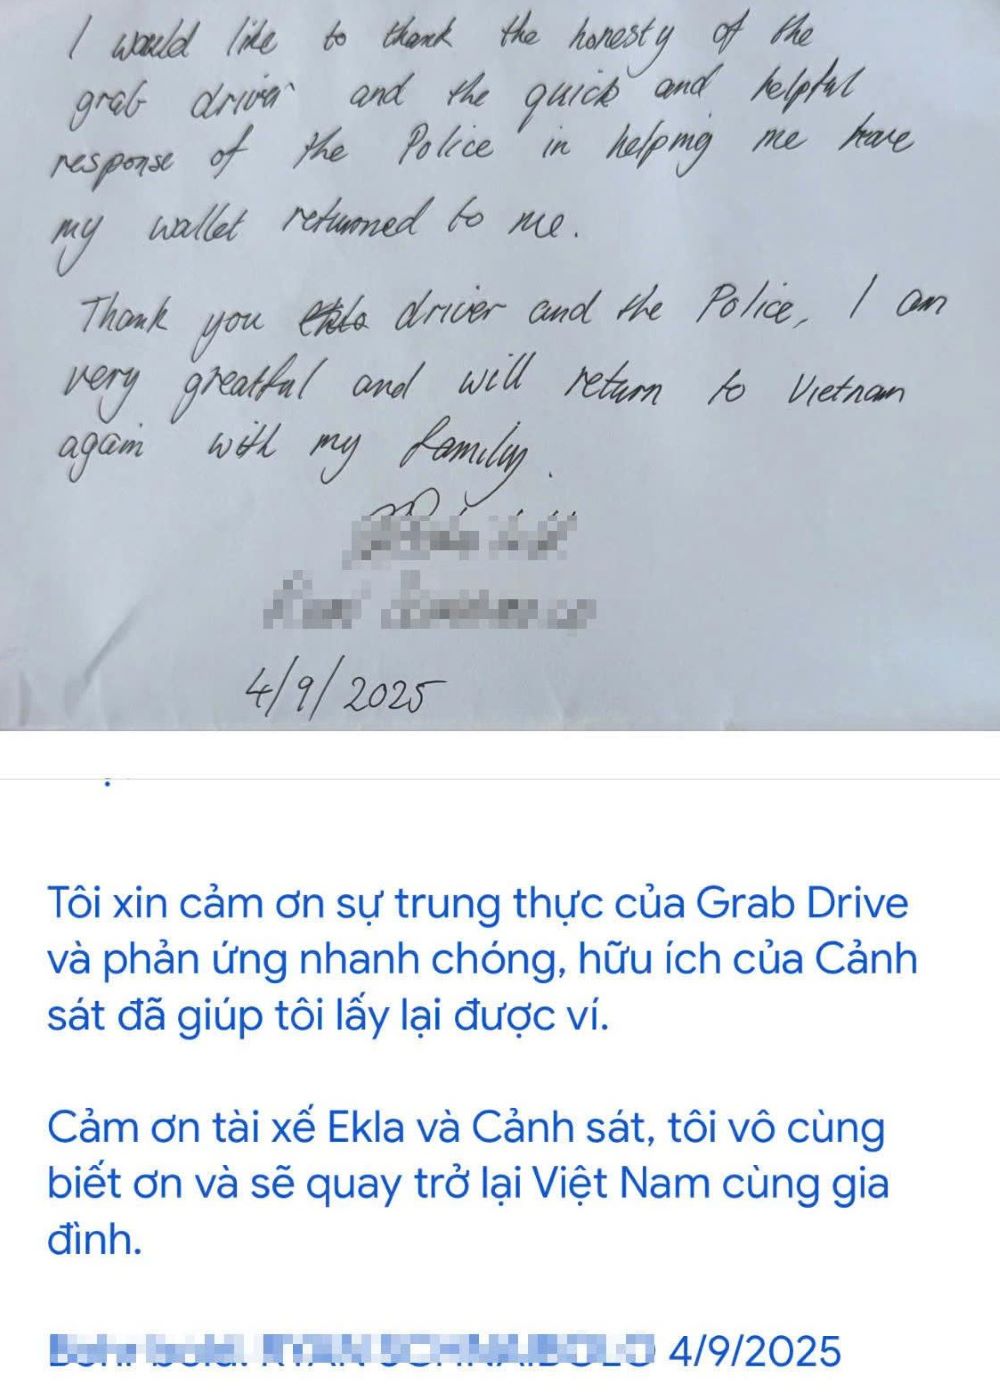 I would like to thank the honesty of the
grab driver and the quick and helpful
response of the Police in helping me have
my wallet returned to me.
Thank you driver and the Police, I am
very greatful and will return to Vietnam
again with my family.
4/9/2025
Tôi xin cảm ơn sự trung thực của Grab Drive
và phản ứng nhanh chóng, hữu ích của Cảnh
sát đã giúp tôi lấy lại được ví.
Cảm ơn tài xế Ekla và Cảnh sát, tôi vô cùng
biết ơn và sẽ quay trở lại Việt Nam cùng gia
đình.
4/9/2025